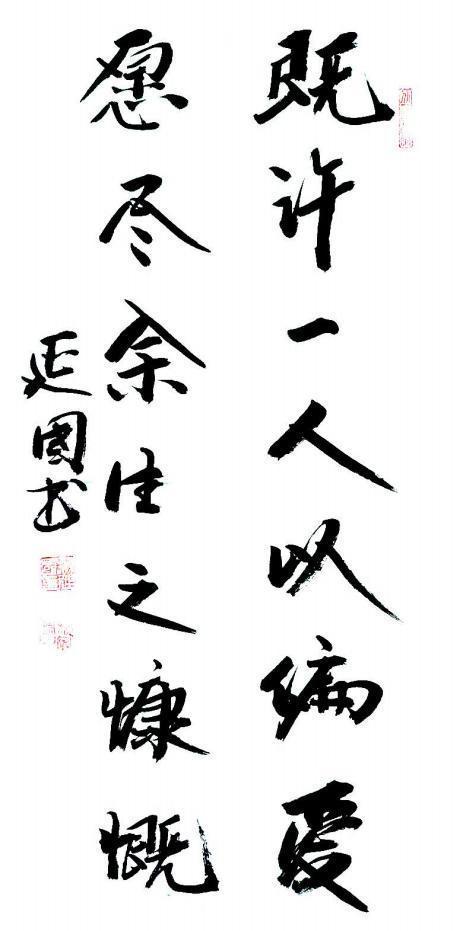 既许一人以编爱
愿尽余生之慷慨
延國书